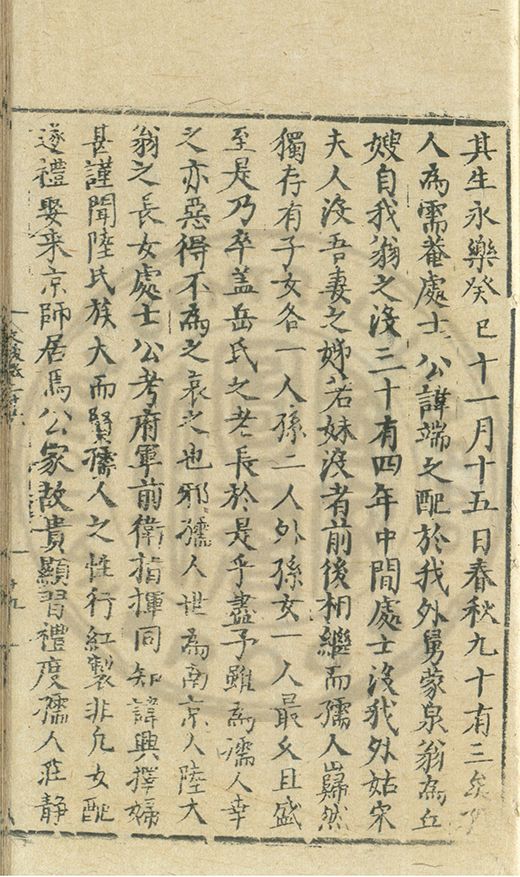 其生永樂癸巳十一月十五日春秋九十有三矣
人為需菴處士公諱端之配於我外舅蒙泉翁為丘
嫂自我翁之沒三十有四年中間處士沒我外姑宋
夫人沒吾妻之姊若妹沒者前後相繼而孺人巋然
獨存有子女各一人孫二人外孫女一人最久且盛
至是乃卒盖岳氏之老長於是乎盡予雖為孺人幸
之亦惡得不為之哀之也邪孺人世為南京人陸大
翁之長女處士公考府軍前衛指揮同知諱興擇婦
甚謹聞陸氏族大而賢孺人之性行紅製非凡女配
遂禮娶來京師居焉公家故貴顯習禮度孺人莊静